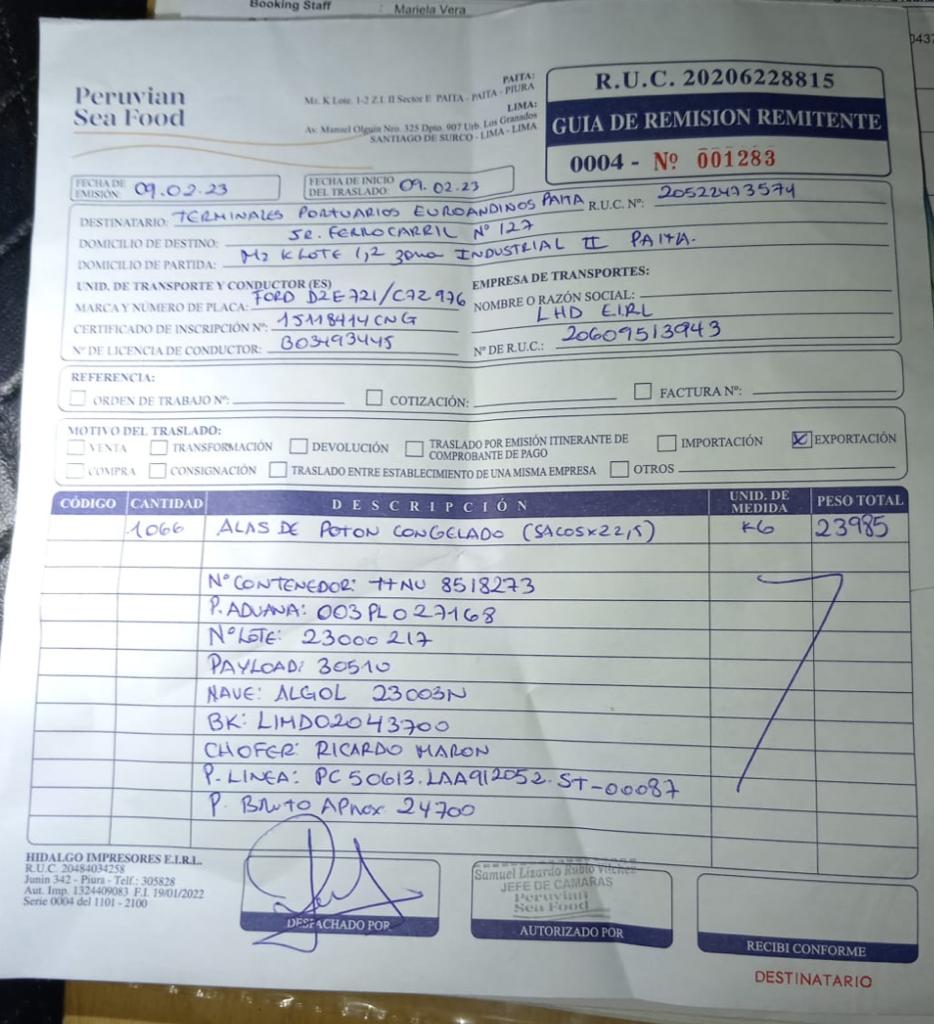 Booking Staff : Mariela Vera
0437
Peruvian
Sea Food
PAITA:
Mz. K Lote. 1-2 Z.I. II Sector E PAITA - PAITA - PIURA
LIMA:
Av. Manuel Olguin Nro. 325 Dpto. 907 Urb. Los Granados
SANTIAGO DE SURCO - LIMA - LIMA
R.U.C. 20206228815
GUIA DE REMISION REMITENTE
0004 - Nº 001283
FECHA DE EMISIÓN: 09.02.23
FECHA DE INICIO DEL TRASLADO: 09.02.23
DESTINATARIO: TERMINALES PORTUARIOS EUROANDINOS PAITA R.U.C. Nº: 20522473574
DOMICILIO DE DESTINO: JR. FERROCARRIL Nº 127
DOMICILIO DE PARTIDA: Mz K LOTE 1,2 zona INDUSTRIAL II PAITA.
UNID. DE TRANSPORTE Y CONDUCTOR (ES)
MARCA Y NÚMERO DE PLACA: FORD D2E721/C7Z976
CERTIFICADO DE INSCRIPCIÓN Nº: 15118414CNG
Nº DE LICENCIA DE CONDUCTOR: B03493445
EMPRESA DE TRANSPORTES:
NOMBRE O RAZÓN SOCIAL:
LHD E.I.R.L
Nº DE R.U.C.: 20609513943
REFERENCIA:
ORDEN DE TRABAJO Nº: COTIZACIÓN: FACTURA Nº:
MOTIVO DEL TRASLADO:
VENTA TRANSFORMACIÓN DEVOLUCIÓN TRASLADO POR EMISIÓN ITINERANTE DE COMPROBANTE DE PAGO IMPORTACIÓN EXPORTACIÓN
COMPRA CONSIGNACIÓN TRASLADO ENTRE ESTABLECIMIENTO DE UNA MISMA EMPRESA OTROS
CÓDIGO CANTIDAD DESCRIPCIÓN UNID. DE MEDIDA PESO TOTAL
1066 ALAS DE POTON CONGELADO (SACOSx22,5) KG 23985
Nº CONTENEDOR: TTNU 8518273
P. ADUANA: 003PL027168
Nº LOTE: 23000217
PAYLOAD: 30510
NAVE: ALGOL 23003N
BK: LIMD02043700
CHOFER: RICARDO MARON
P. LINEA: PC50613.LAA912052.ST-00087
P. BRUTO APROX 24700
HIDALGO IMPRESORES E.I.R.L.
R.U.C. 20484034258
Junin 342 - Piura - Telf.: 305828
Aut. Imp. 1324409083 F.I. 19/01/2022
Serie 0004 del 1101 - 2100
DESPACHADO POR
Samuel Lizardo Rubio Vilchez
JEFE DE CAMARAS
Peruvian
Sea Food
AUTORIZADO POR
RECIBI CONFORME
DESTINATARIO